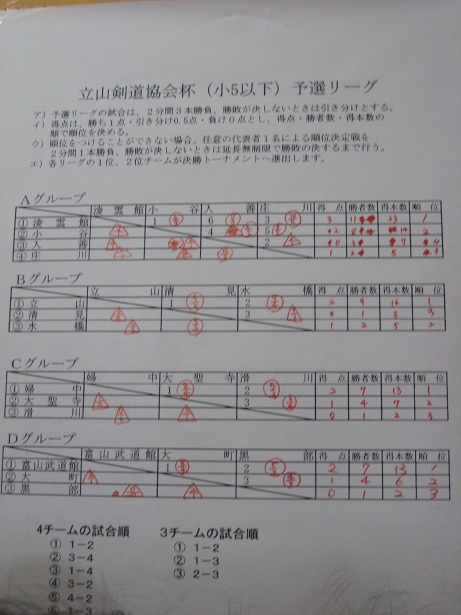 立山剣道協会杯（小5以下）予選リーグ
ア）予選リーグの試合は、2分間3本勝負、勝敗が決しないときは引き分けとする。
イ）得点は、勝ち1点・引き分け0.5点・負け0点とし、得点・勝者数・得本数の
順で順位を決める。
ウ）順位をつけることができない場合、任意の代表者1名による順位決定戦を
2分間1本勝負、勝敗が決しないときは延長無制限で勝敗の決するまで行う。
エ）各リーグの1位、2位チームが決勝トーナメントへ進出します。
Aグループ
凌雲館 小谷 入善 庄川 得点 勝者数 得本数 順位
①凌雲館 1 6 3 3 23 1
②小谷 4 5 2 2
③入善 2 0 7
④庄川 1 5
Bグループ
立山 清見 水橋 得点 勝者数 得本数 順位
①立山 1 2 2 9 16 1
②清見 3 0 1 3 3
③水橋 1 2 5 2
Cグループ
婦中 大聖寺 滑川 得点 勝者数 得本数 順位
①婦中 1 2 2 7 13 1
②大聖寺 3 1 4 7 2
③滑川 0 1 2 3
Dグループ
富山武道館 大町 黒部 得点 勝者数 得本数 順位
①富山武道館 1 2 2 7 13 1
②大町 3 1 4 6 2
③黒部 0 1 2 3
4チームの試合順 3チームの試合順
① 1−2 ① 1−2
② 3−4 ② 1−3
③ 1−4 ③ 2−3
④ 3−2
⑤ 4−2
⑥ 1−3